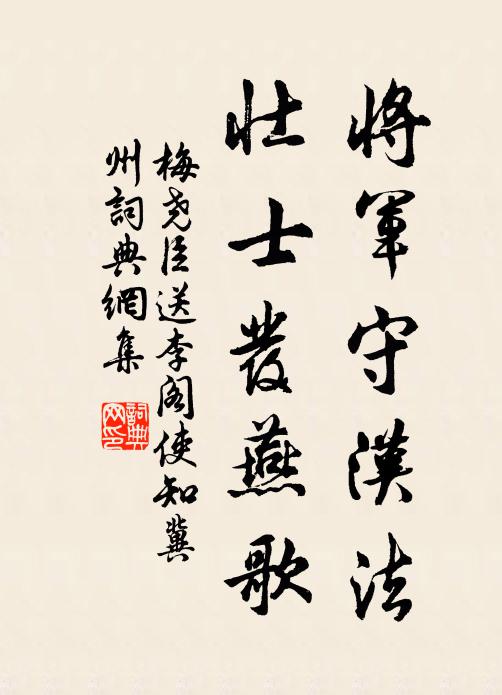 將軍守漢法
壯士發燕歌
梅堯臣送李閣使知冀
州詞典網集
詞典網印